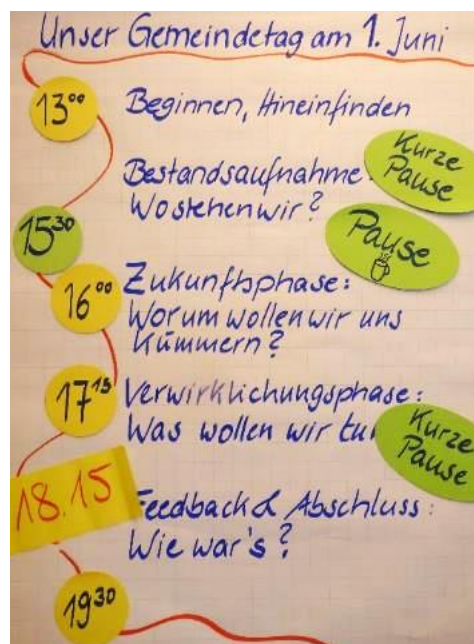 Unser Gemeindetag am 1. Juni
13⁰⁰ Beginnen, Hineinfinden
Kurze
Pause
Bestandsaufnahme
Wo stehen wir?
15³⁰ Pause
16⁰⁰ Zukunftsphase:
Worum wollen wir uns
kümmern?
17¹⁵ Verwirklichungsphase:
Was wollen wir
Kurze
Pause
18.15 Feedback & Abschluss:
Wie war's?
19³⁰